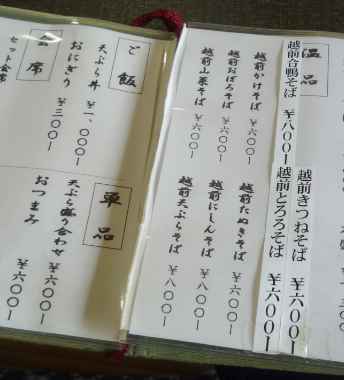 温品
越前合鴨そば ¥八〇〇ー
越前かけそば ¥六〇〇ー
越前おぼろそば ¥六〇〇ー
越前山菜そば ¥六〇〇ー
越前きつねそば ¥六〇〇ー
越前とろろそば ¥六〇〇ー
越前たぬきそば ¥六〇〇ー
越前にしんそば ¥八〇〇ー
越前天ぷらそば ¥八〇〇ー
ご飯
天ぷら丼 ¥一、〇〇〇ー
おにぎり ¥三〇〇ー
会席
セット会席
単品
天ぷら盛り合わせ ¥六〇〇ー
おつまみ ¥六〇〇ー